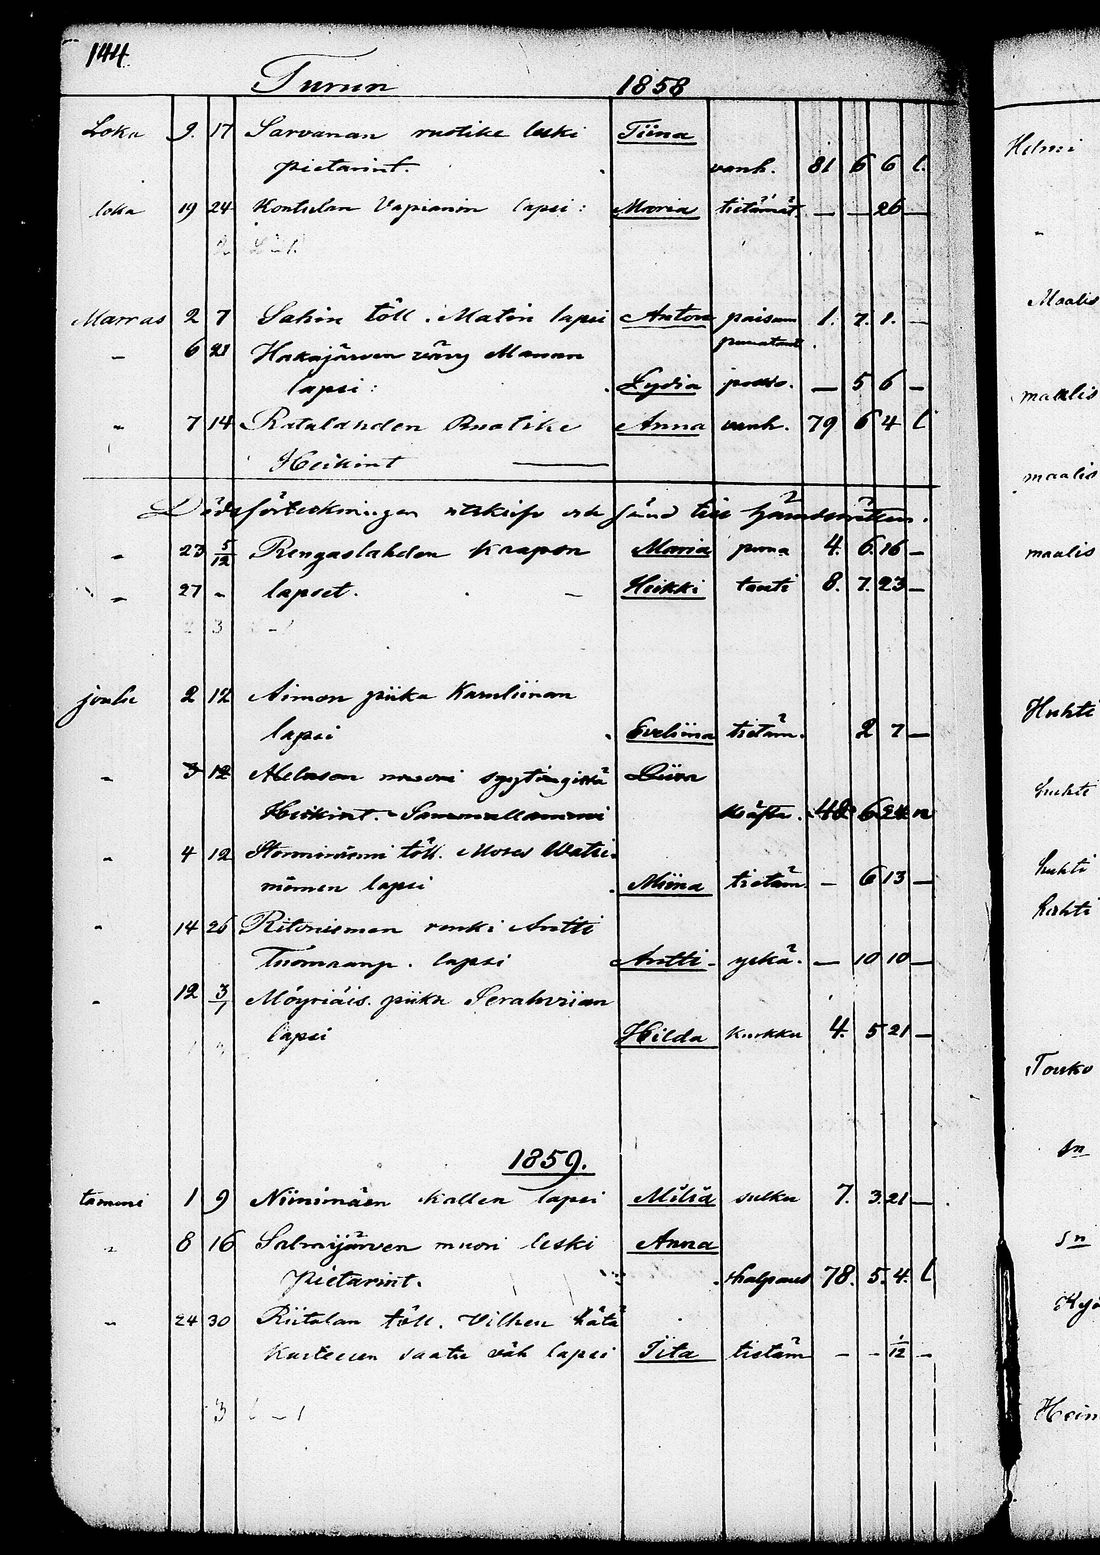 144
Turun 1858
Loka 9. 17 Sarvanan rustike leski Tiina
pietarint. vanh. 81 6 6 l.
loka 19 24 Kontulan Vapianin lapsi: Maria tietämät. — — 26 —
Marras 2 7 Sahin töll. Matin lapsi Anton paisum 1. 7. 1. —
" 6 21 Hakajärven Manan
lapsi: Lydia — 5 6 —
" 7 14 Ratalahden Rustike Anna vanh. 79 6 4 l
Heikint
Dödsförteckningen utskrifv och sänd till Häradsrätten.
" 23 5/12 Rengaslahden Kaapon Maria puna 4. 6. 16 —
" 27 " lapset. — Heikki tauti 8. 7. 23 —
3 l-1
joulu 2 12 Aimon piika Karuliinan
lapsi Eveliina tietäm. 2 7 —
" 3 12 syytingissä Liisa
Heikint. 48 6 24 n
" 4 12 töll. Moses Watsi-
lapsi Miina tietäm — 6 13 —
" 14 26 renki Antti
Tuomaanp. lapsi Antti yskä. — 10 10 —
" 12 3/1 piika Serahviian
lapsi Hilda kurkku 4. 5 21 —
1859.
tammi 1 9 Niinimäen Kallen lapsi Miliä sulku 7. 3. 21 —
" 8 16 Salmijärven muori leski Anna
pietarint. halpaus 78. 5. 4. l
" 24 30 Riitalan töll. Vilhen hätä
kasteesen saatu väh lapsi Iita tietäm — — 1/12 —
3 l-1
Helmi
"
Maalis
maalis
maalis
maalis
Huhti
huhti
huhti
huhti
Touko
sn
sn